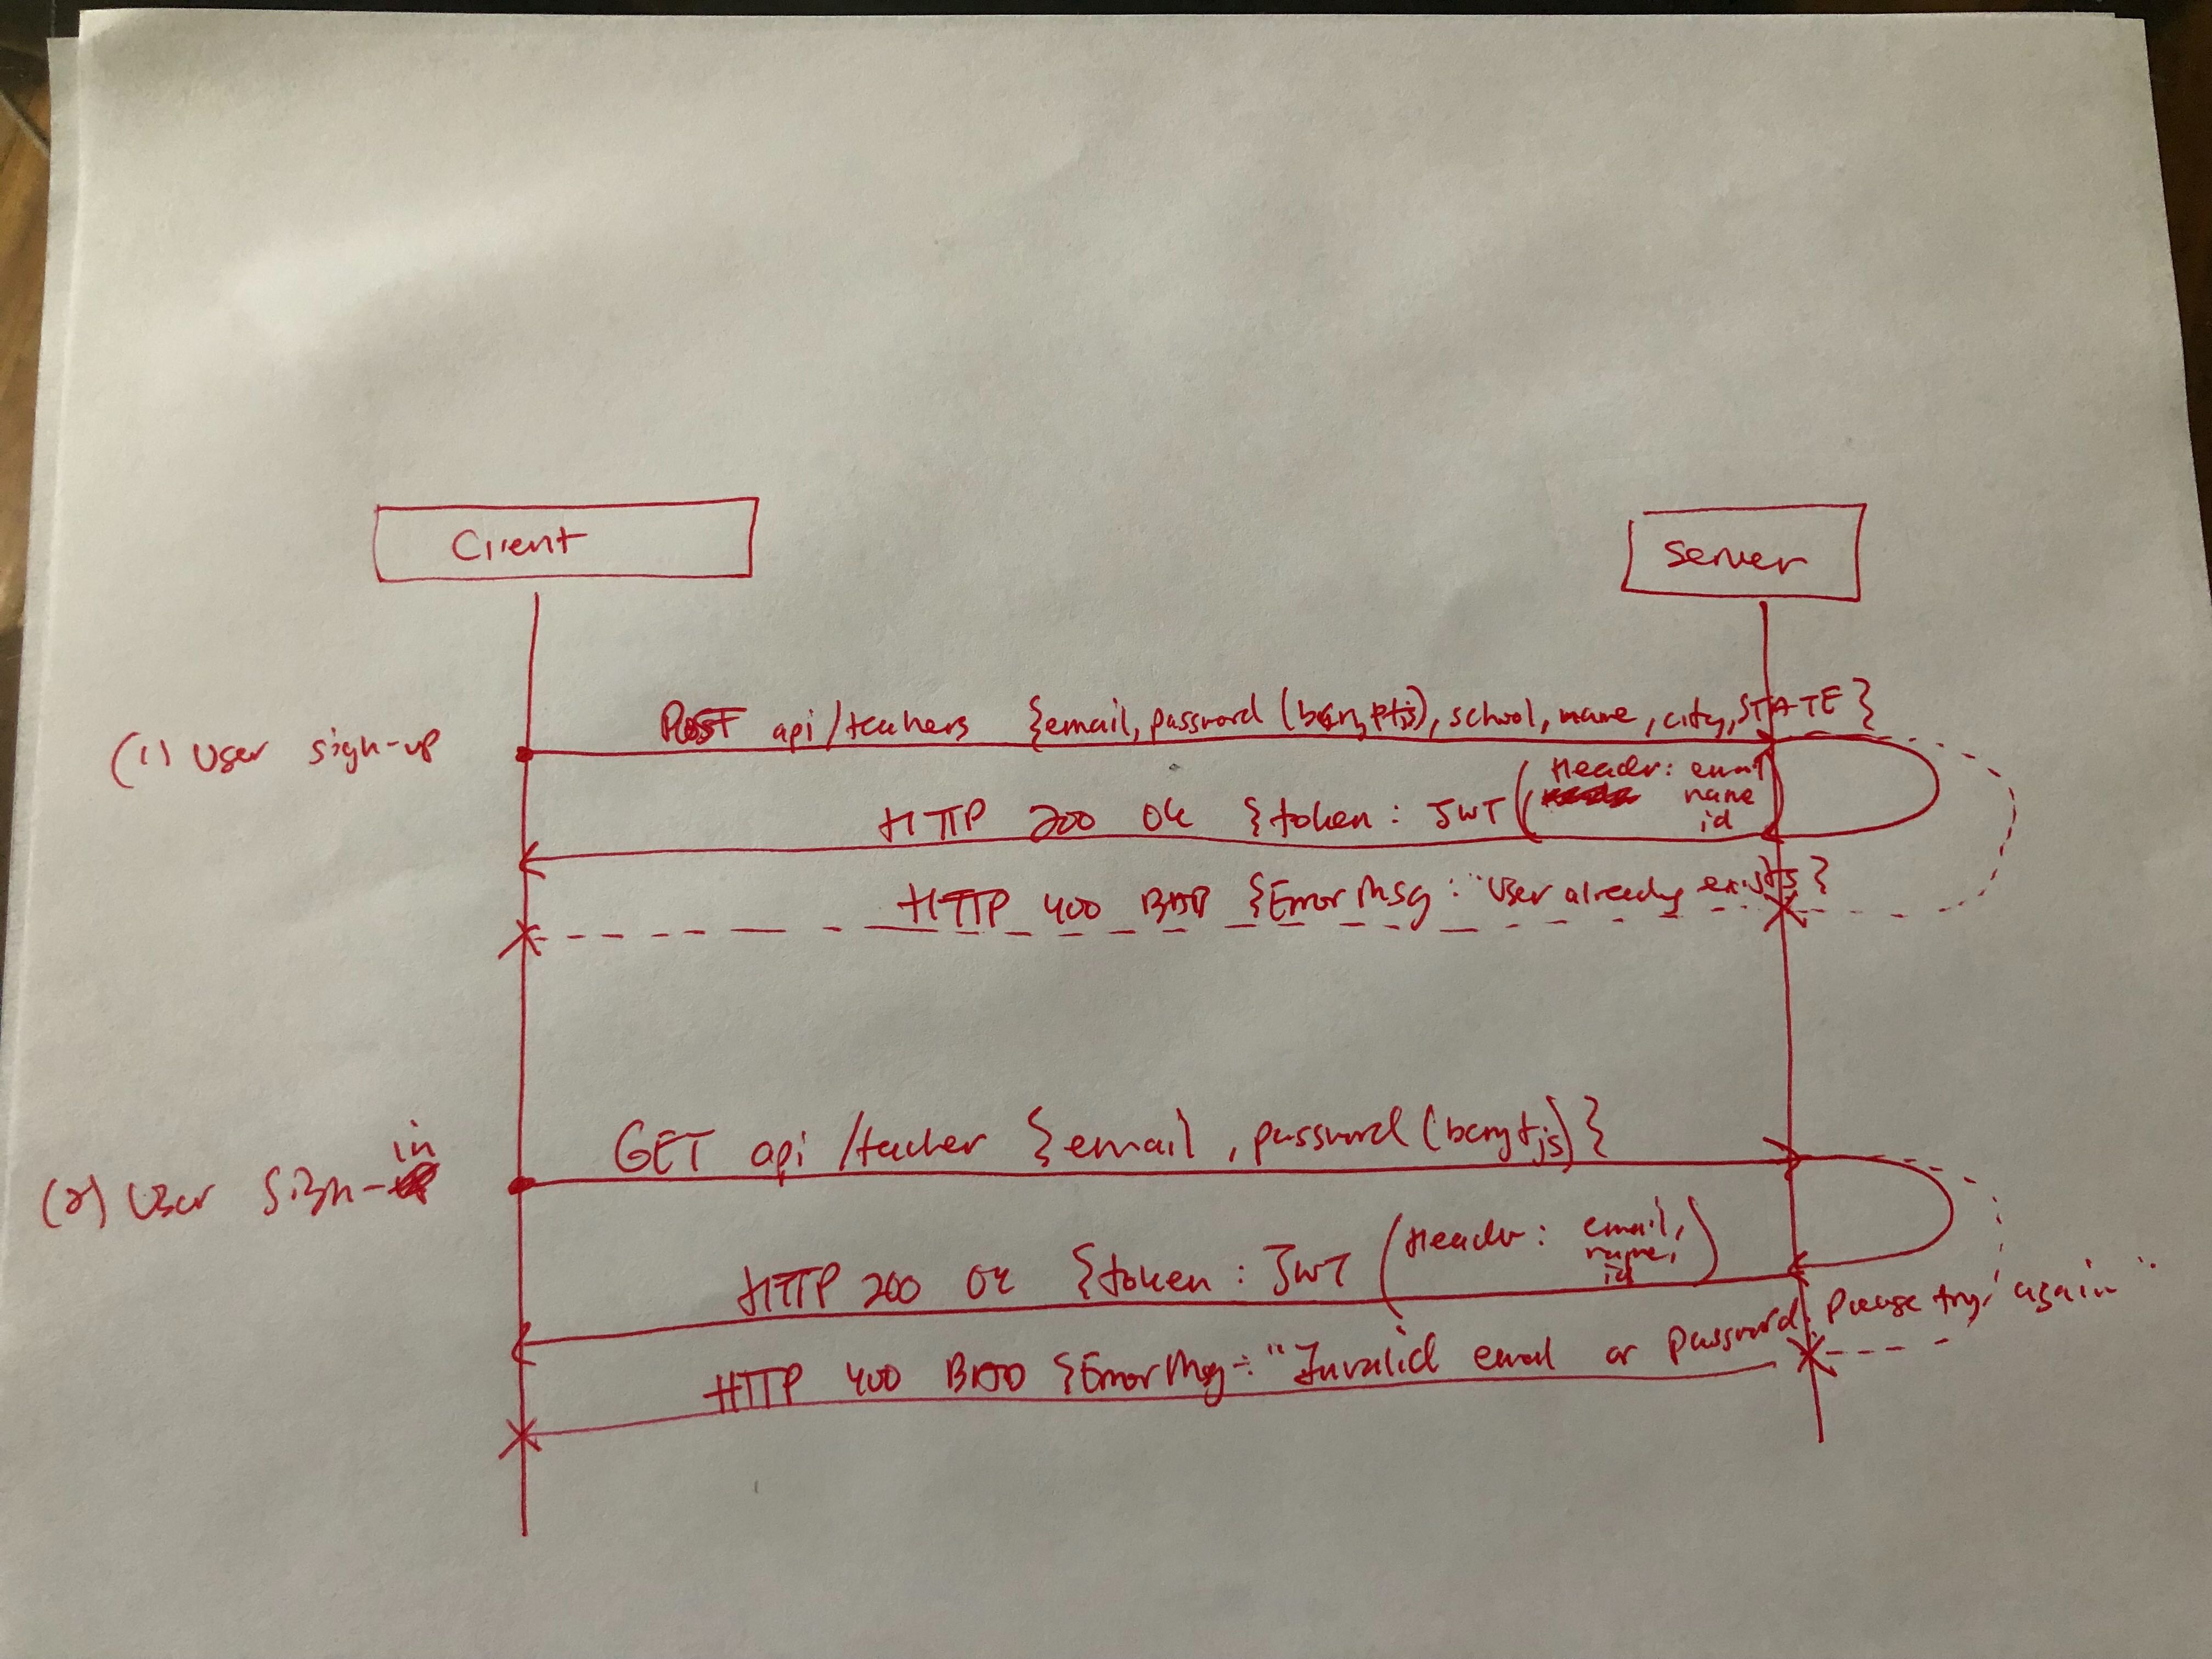 Client
Server
(1) User sign-up
POST api/teachers {email, password (bcryptjs), school, name, city, STATE}
HTTP 200 OK {token: JWT (Header: email
name
id
HTTP 400 BAD {ErrorMsg: "User already exists}
(2) User sign-in
GET api/teacher {email, password (bcrytjs)}
HTTP 200 OK {token: JWT (Header: email,
name,
id)
HTTP 400 BAD {ErrorMsg: "Invalid email or password. Please try again"